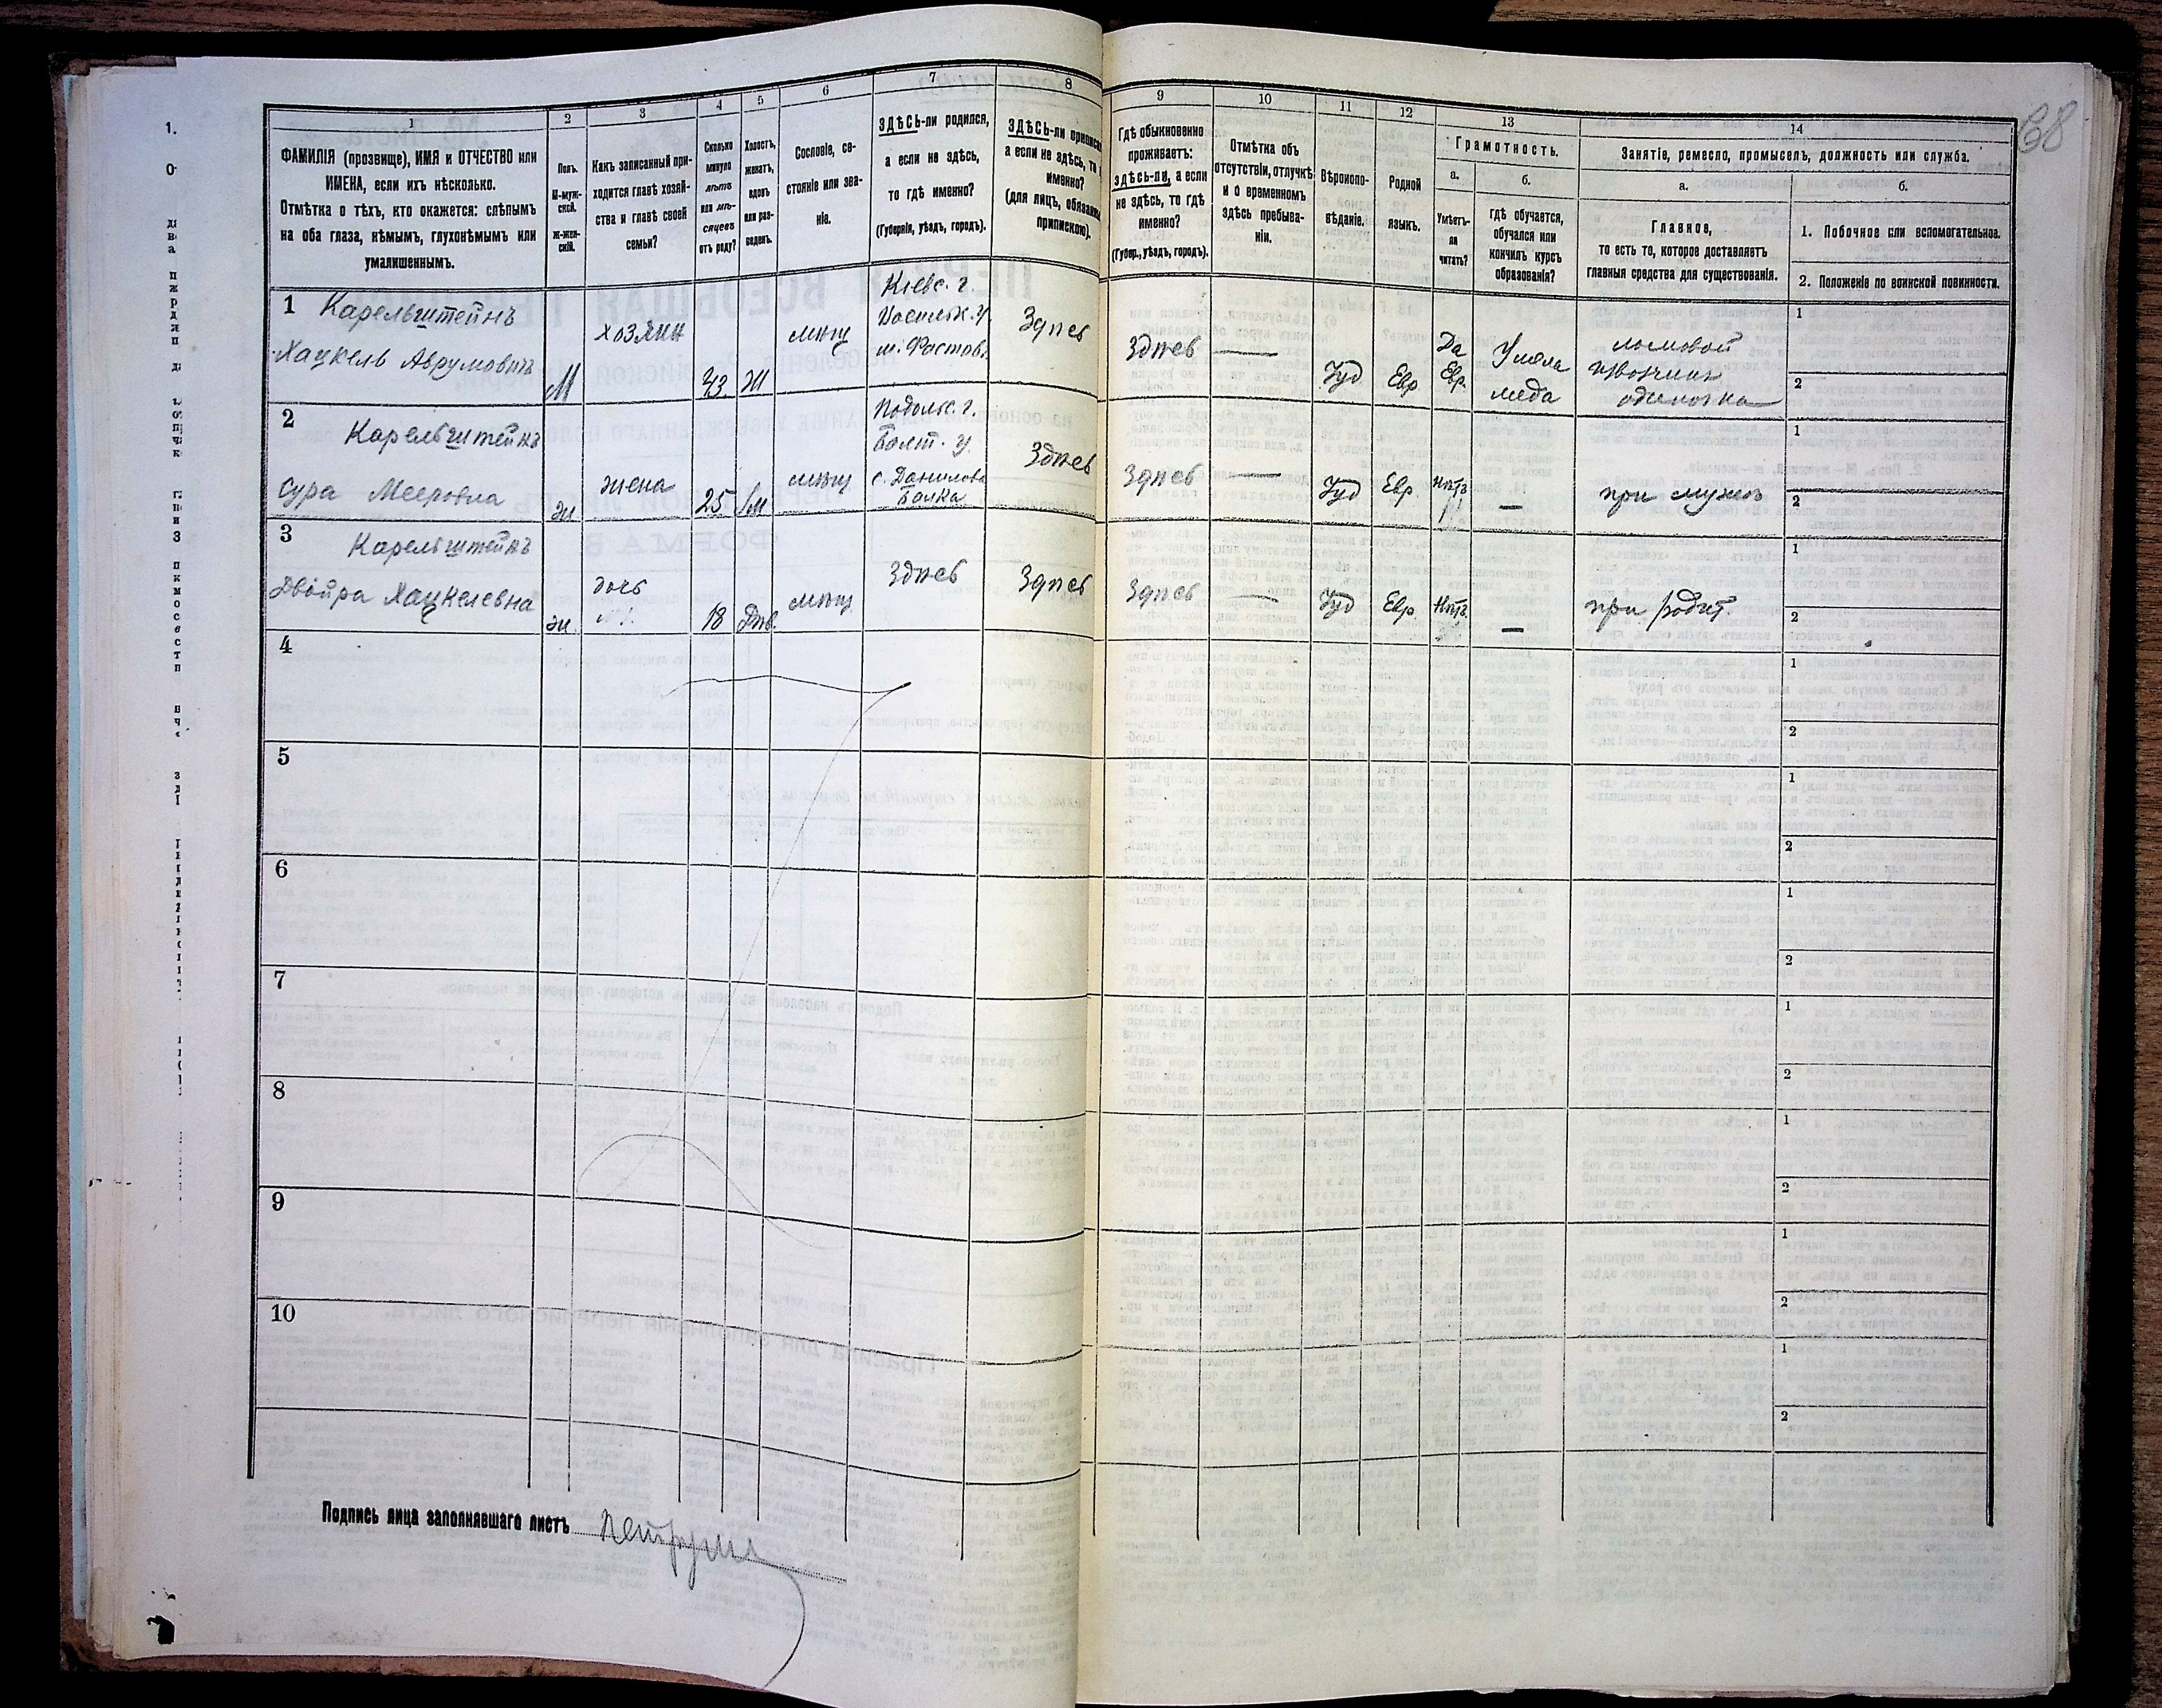 68
1
2
3
4
5
6
7
8
ФАМИЛІЯ (прозвище), ИМЯ и ОТЧЕСТВО или
ИМЕНА, если ихъ нѣсколько.
Отмѣтка о тѣхъ, кто окажется: слѣпымъ
на оба глаза, нѣмымъ, глухонѣмымъ или
умалишеннымъ.
Полъ.
М-муж-
ской.
Ж-жен-
скій.
Какъ записанный при-
ходится главѣ хозяй-
ства и главѣ своей
семьи?
Сколько
минуло
лѣтъ
или мѣ-
сяцевъ
отъ роду?
Холостъ,
женатъ,
вдовъ
или раз-
веденъ.
Сословіе, со-
стояніе или зва-
ніе.
ЗДѢСЬ-ли родился,
а если не здѣсь,
то гдѣ именно?
(Губернія, уѣздъ, городъ).
ЗДѢСЬ-ли приписанъ
а если не здѣсь, то
именно?
(для лицъ, обязанн
припискою).
9
10
11
12
13
14
Гдѣ обыкновенно
проживаетъ:
здѣсь-ли, а если
не здѣсь, то гдѣ
именно?
(Губер., уѣздъ, городъ).
Отмѣтка объ
отсутствіи, отлучкѣ
и о временномъ
здѣсь пребыва-
ніи.
Вѣроиспо-
вѣданіе.
Родной
языкъ.
Грамотность.
а.
Умѣетъ-
ли
читать?
б.
гдѣ обучается,
обучался или
кончилъ курсъ
образованія?
Занятіе, ремесло, промыселъ, должность или служба.
а.
Главное,
то есть то, которое доставляетъ
главныя средства для существованія.
б.
1. Побочное или вспомогательное.
2. Положеніе по воинской повинности.
1 Карельштейнъ
Хацкель Аврумовичъ
М
хозяин
43.
Ж
мѣщ
Кіевс. г.
Васильк. у.
м. Фастов.
Здѣсь
Здѣсь
—
Іуд
Евр
Да
Евр.
У мела
меда
ломовой
извозчик
одиночка
1
2
2 Карельштейнъ
Сура Мееровна
ж
жена
25
мѣщ
Подольс. г.
Балт. у.
с. Данилова
Балка
Здѣсь
Здѣсь
—
Іуд
Евр.
нѣтъ
—
при мужѣ
1
2
3 Карельштейнъ
Двойра Хацкелевна
ж.
дочь
18
Дѣв.
мѣщ
Здѣсь
Здѣсь
Здѣсь
—
Іуд
Евр.
Нѣтъ.
—
при родит.
1
2
4
1
2
5
1
2
6
1
2
7
1
2
8
1
2
9
1
2
10
1
2
Подпись лица заполнявшаго листъ